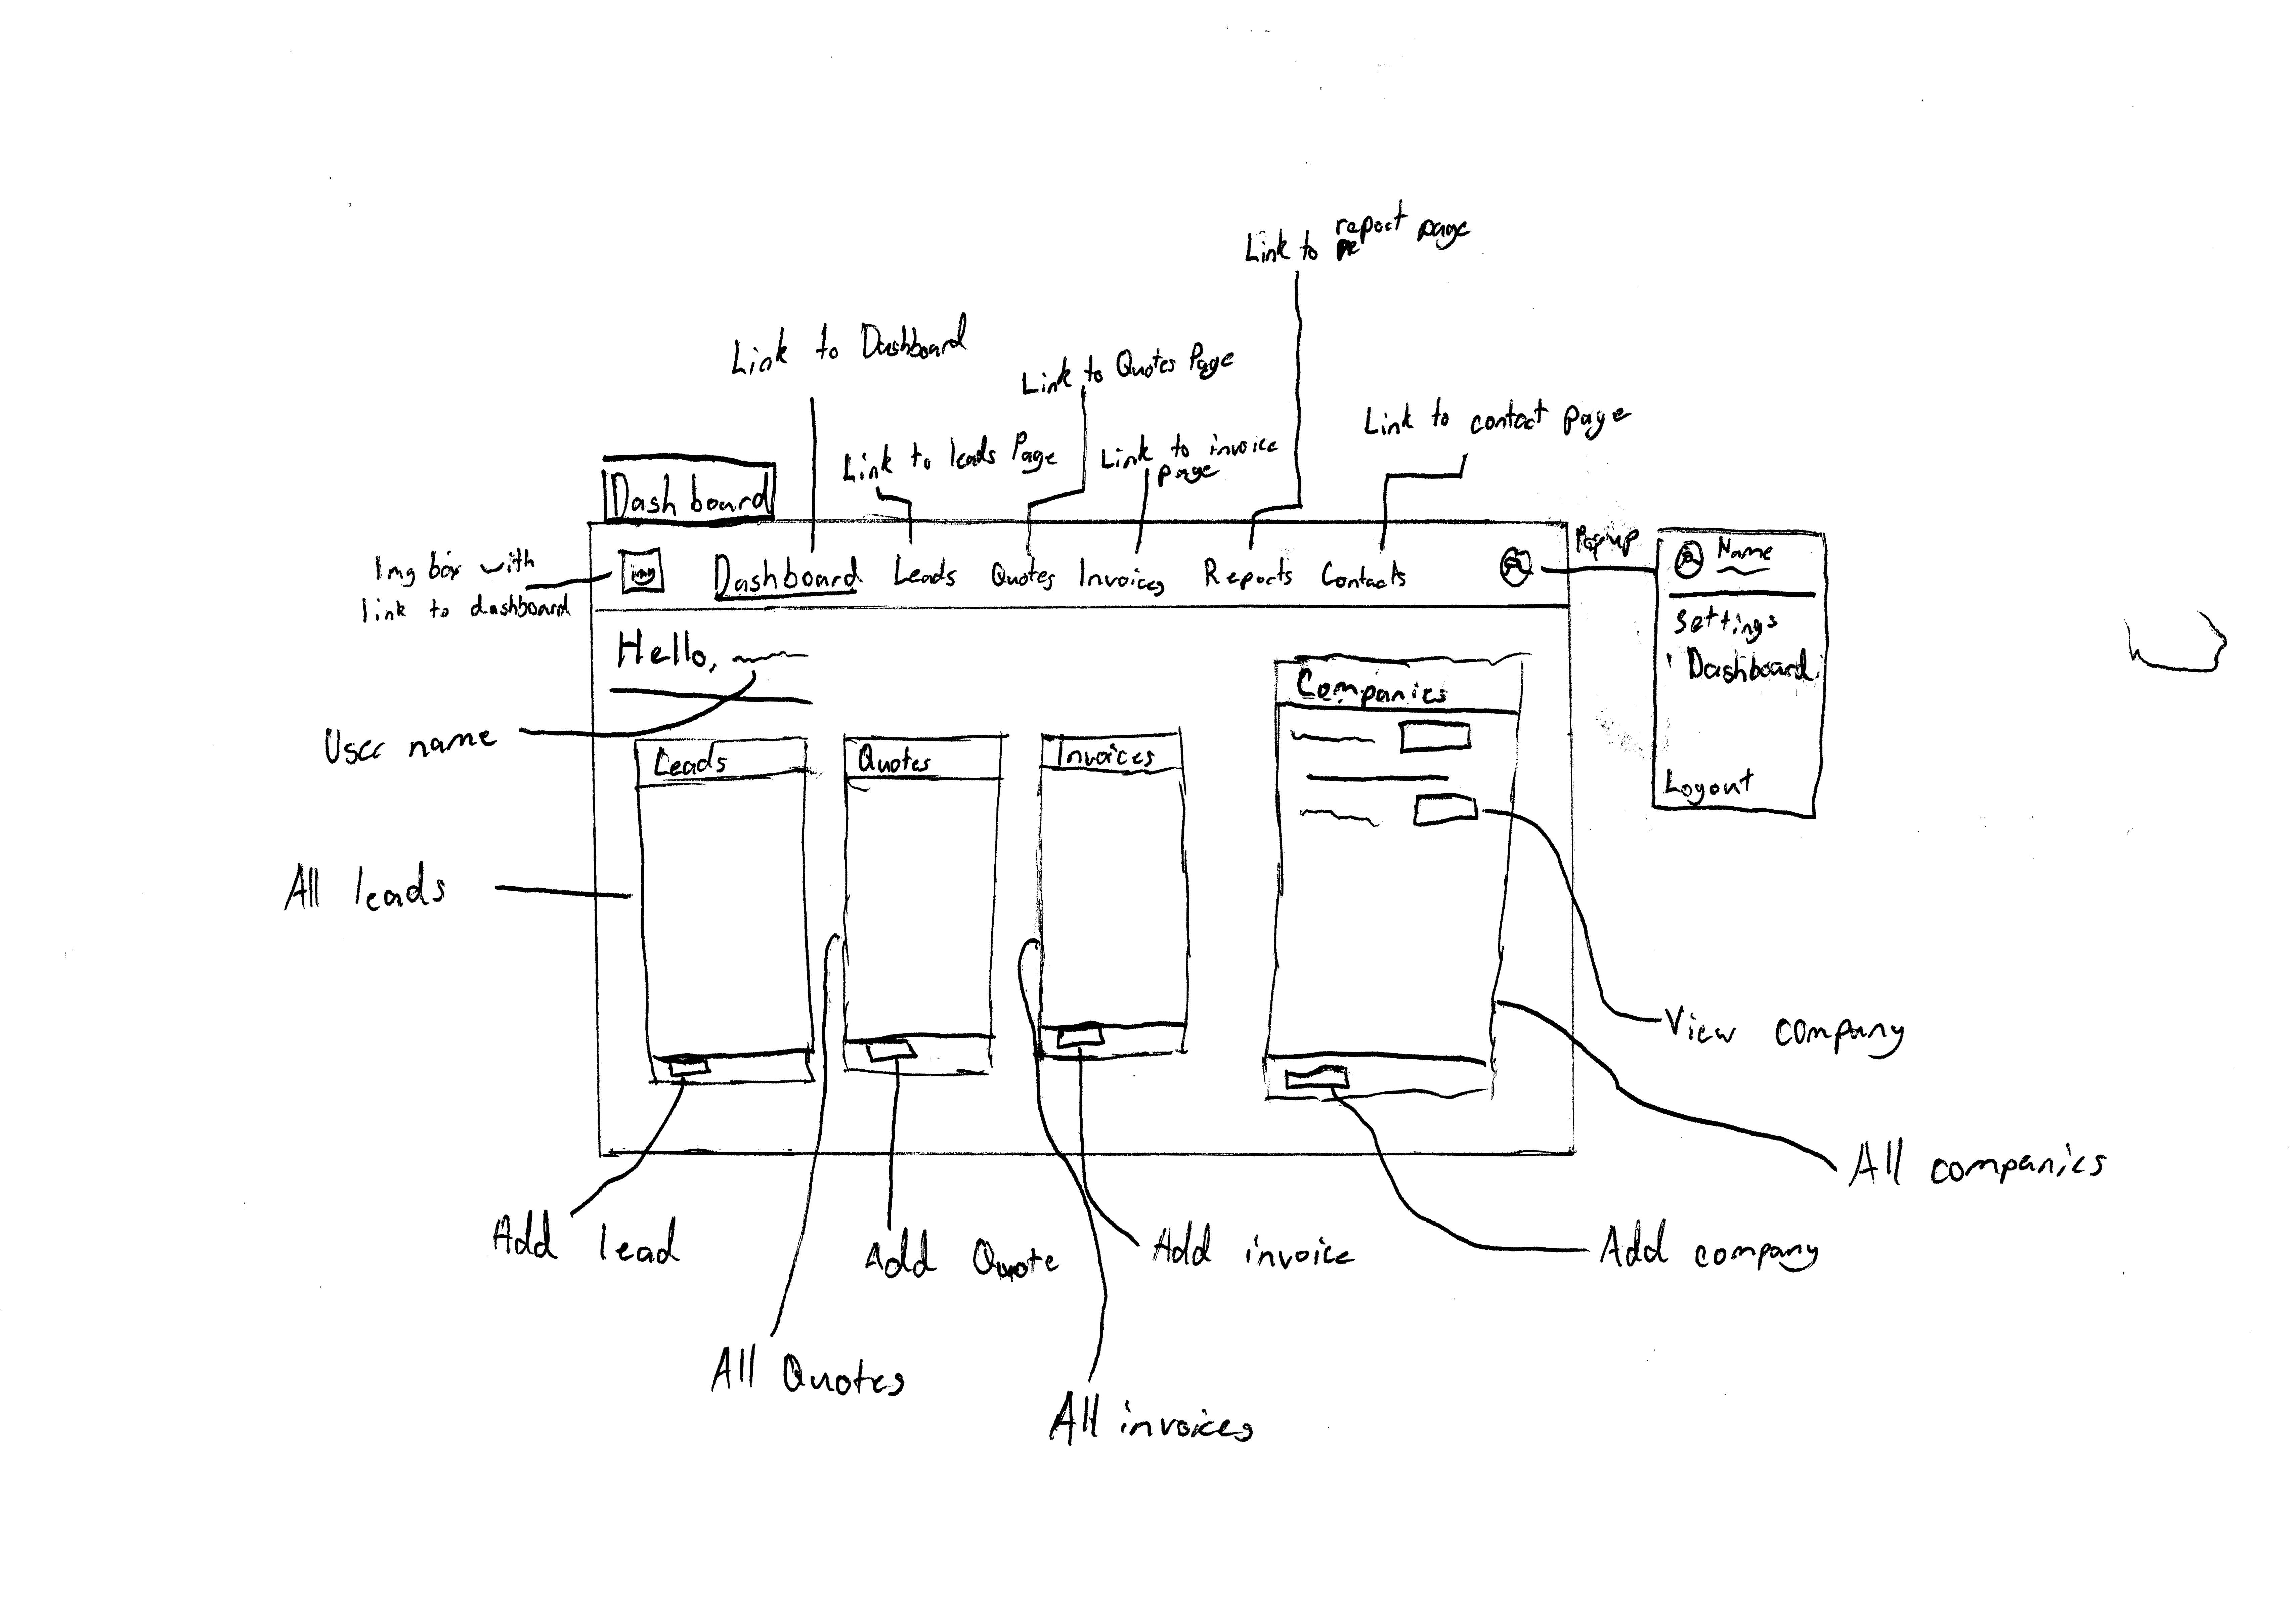 Link to report page
Link to Dashboard
Link to Quotes Page
Link to contact page
Link to leads Page
Link to invoice
page
Dashboard
Img box with
link to dashboard
img
Dashboard
Leads
Quotes
Invoices
Reports
Contacts
Popup
Name
Settings
Dashboard
Logout
Hello,
User name
Companies
Leads
Quotes
Invoices
All leads
View company
All companies
Add lead
Add Quote
Add invoice
Add company
All Quotes
All invoices